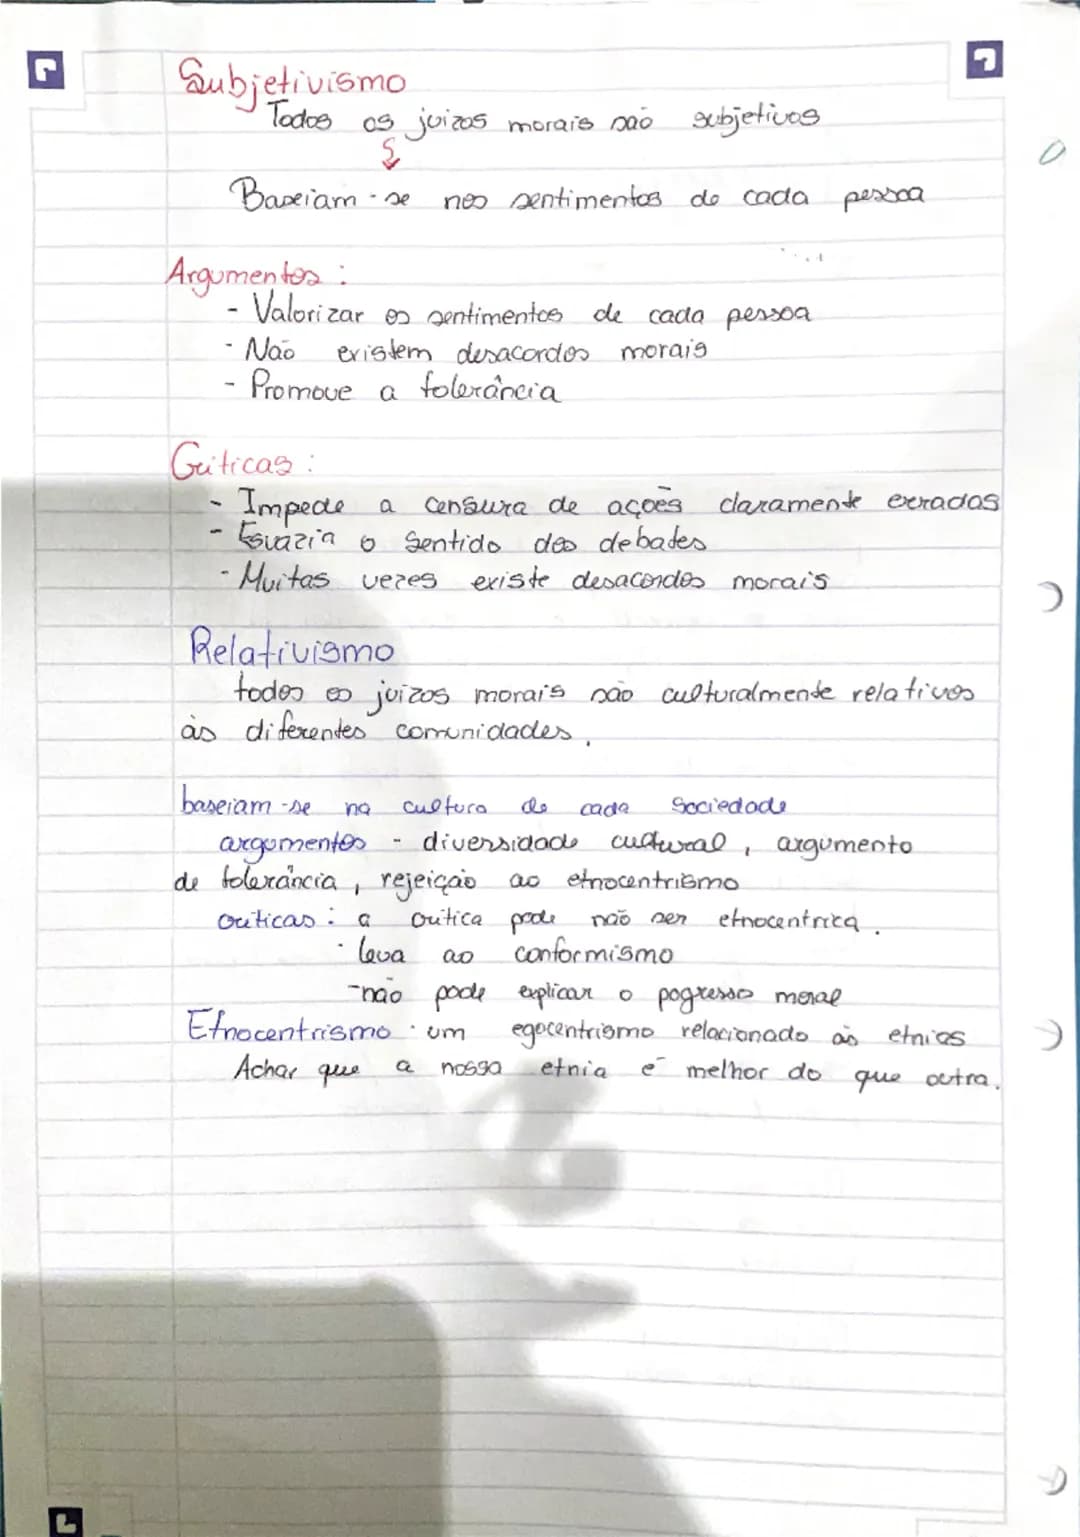 Subjetivismo
Todos os juizos morais são subjetivos
Baseiam-se nos sentimentos de cada pessoa
Argumentos :
- Valorizar os sentimentos de cada pessoa
- Não existem desacordos morais
- Promove a tolerância
Criticas :
- Impede a censura de ações claramente erradas
- Esvazia o sentido dos debates
- Muitas vezes existe desacordos morais
Relativismo
todos os juizos morais são culturalmente relativos
às diferentes comunidades.
baseiam-se na cultura de cada sociedade
argumentos - diversidade cultural, argumento
de tolerância, rejeição ao etnocentrismo
criticas : a critica pode não ser etnocentrica.
· leva ao conformismo
- não pode explicar o pogresso moral
Etnocentrismo · um egocentrismo relacionado às etnias
Achar que a nossa etnia é melhor do que outra.